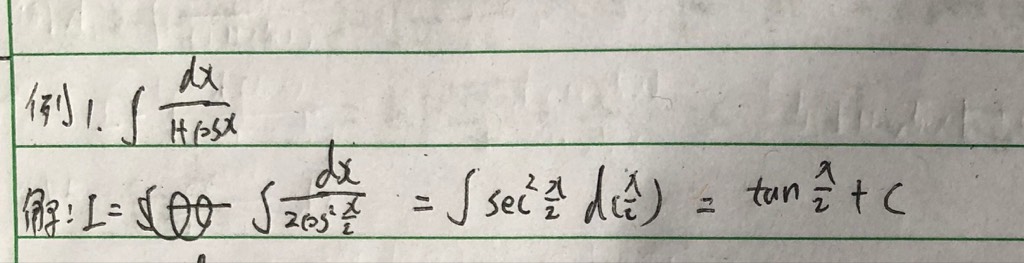 例1. ∫ dx/(1+cosx)
解: I = ∫ dx/(2cos² x/2) = ∫ sec² x/2 d(x/2) = tan x/2 + C